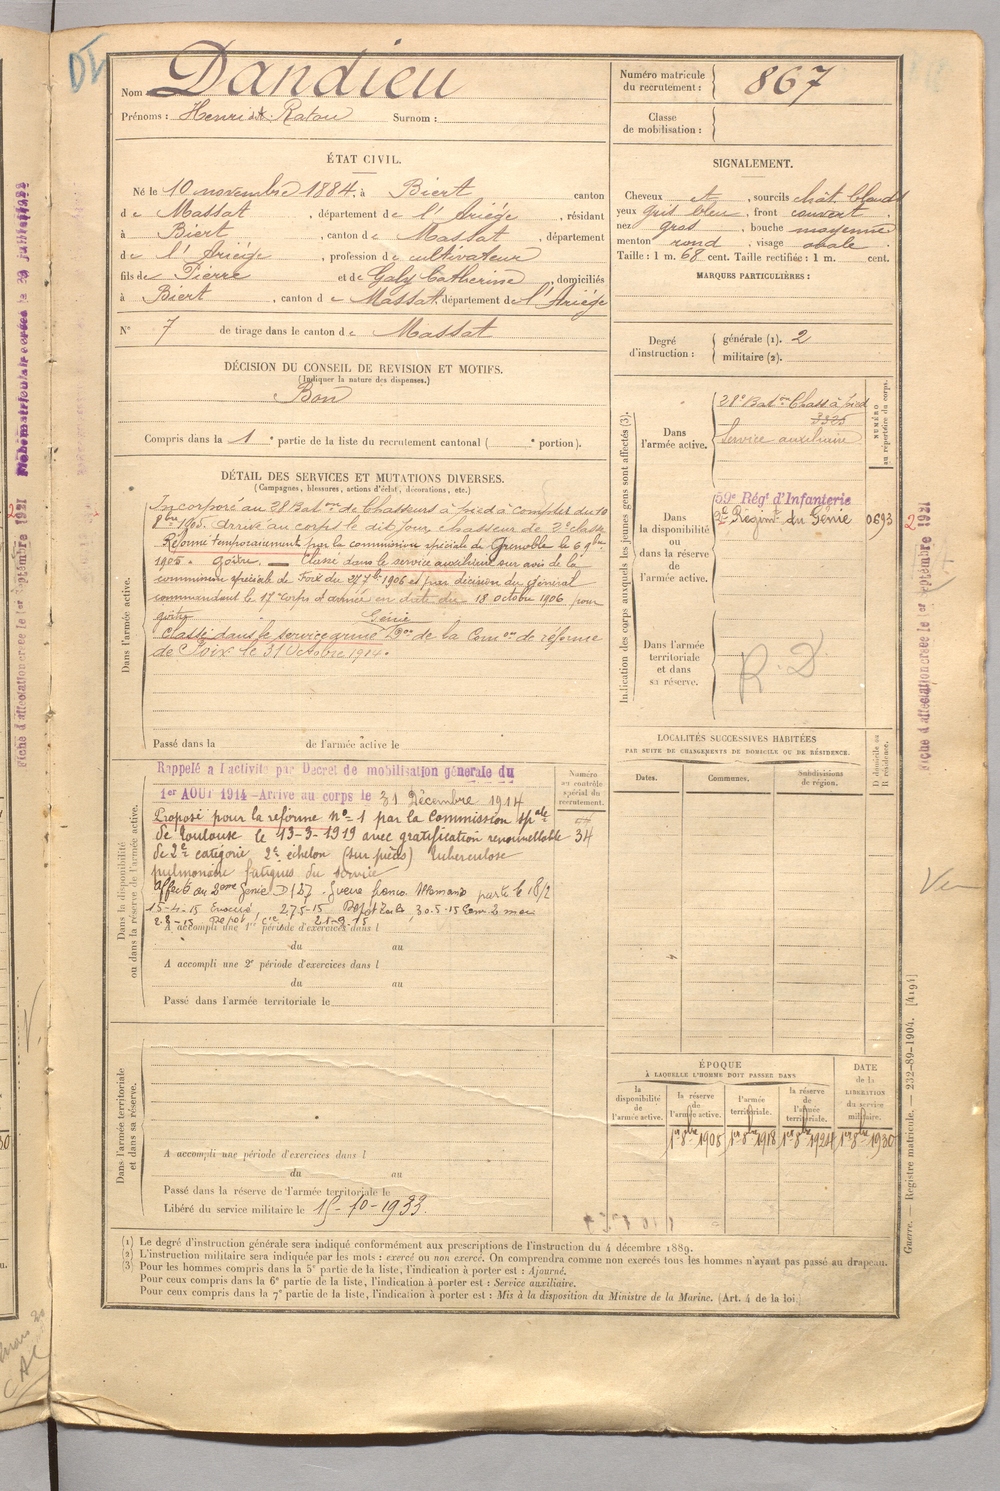 DI
Nom Dandieu
Prénoms : Henri dit Ratou Surnom :
ÉTAT CIVIL.
Né le 10 novembre 1884, à Biert canton
de Massat, département de l'Ariége, résidant
à Biert, canton de Massat, département
de l'Ariége, profession de cultivateur
fils de Pierre et de Galy Catherine, domiciliés
à Biert, canton de Massat, département de l'Ariége
N° 7 de tirage dans le canton de Massat
DÉCISION DU CONSEIL DE REVISION ET MOTIFS.
(Indiquer la nature des dispenses.)
Bon
Compris dans la 1e partie de la liste du recrutement cantonal ( e portion).
DÉTAIL DES SERVICES ET MUTATIONS DIVERSES.
(Campagnes, blessures, actions d'éclat, décorations, etc.)
Dans l'armée active.
Incorporé au 28 Baton de Chasseurs à pied à compter du 10
8bre 1905. Arrivé au corps le dit jour, chasseur de 2e classe
Réformé temporairement par la commission spéciale de Grenoble le 6 9bre
1905. goitre. — Classé dans le service auxiliaire sur avis de la
commission spéciale de Foix du 27 7bre 1906 et par décision du Général
commandant le 17e corps d'armée en date du 18 octobre 1906 pour
goitre
Génie
Classé dans le service armé Don de la Comon de réforme
de Foix le 31 Octobre 1914.
Passé dans la de l'armée active le
Dans la disponibilité
ou dans la réserve de l'armée active.
Rappelé à l'activité par Décret de mobilisation générale du
1er AOUT 1914 - Arrivé au corps le 31 Décembre 1914
Proposé pour la réforme n° 1 par la Commission spale
de Toulouse le 13-3-1919 avec gratification renouvellable
de 2e catégorie 2e échelon (sur pièces) Tuberculose
pulmonaire fatigues du service
Affecté au 2ème Génie D/27. Guerre franco Allemand parti le 18/2
15-4-15 Evacué 27.5-15 Dépôt 30.5.15
2.8-15 Dépôt, Cie 21-9-15
A accompli une 1re période d'exercices dans l
du au
A accompli une 2e période d'exercices dans l
du au
Passé dans l'armée territoriale le
Numéro
au contrôle
spécial du
recrutement.
34
Dans l'armée territoriale
et dans sa réserve.
A accompli une période d'exercices dans l
du au
Passé dans la réserve de l'armée territoriale le
Libéré du service militaire le 15-10-1933.
Numéro matricule
du recrutement : 867
Classe
de mobilisation :
SIGNALEMENT.
Cheveux et, sourcils chât. blonds
yeux gris bleu, front couvert,
nez gros, bouche moyenne
menton rond, visage ovale
Taille : 1 m. 68 cent. Taille rectifiée : 1 m. cent.
MARQUES PARTICULIÈRES :
Degré
d'instruction :
générale (1). 2
militaire (2).
Indication des corps auxquels les jeunes gens sont affectés (3).
NUMÉRO
au répertoire du corps.
Dans
l'armée active.
28e Baton Chass à pied
3325
Service auxiliaire
59e Régt d'Infanterie
2e Régimt du Génie 0693
Dans
la disponibilité
ou
dans la réserve
de
l'armée active.
Dans l'armée
territoriale
et dans
sa réserve.
R. D
LOCALITÉS SUCCESSIVES HABITÉES
PAR SUITE DE CHANGEMENTS DE DOMICILE OU DE RÉSIDENCE.
Dates.
Communes.
Subdivisions
de région.
D domicile ou
R résidence.
ÉPOQUE
À LAQUELLE L'HOMME DOIT PASSER DANS
la
disponibilité
de
l'armée active.
la réserve
de
l'armée active.
l'armée
territoriale.
la réserve
de
l'armée
territoriale.
DATE
de la
LIBÉRATION
du service
militaire.
1er 8bre 1908 1er 8bre 1918 1er 8bre 1924 1er 8bre 1930
(1) Le degré d'instruction générale sera indiqué conformément aux prescriptions de l'instruction du 4 décembre 1889.
(2) L'instruction militaire sera indiquée par les mots : exercé ou non exercé. On comprendra comme non exercés tous les hommes n'ayant pas passé au drapeau.
(3) Pour les hommes compris dans la 5e partie de la liste, l'indication à porter est : Ajourné.
Pour ceux compris dans la 6e partie de la liste, l'indication à porter est : Service auxiliaire.
Pour ceux compris dans la 7e partie de la liste, l'indication à porter est : Mis à la disposition du Ministre de la Marine. (Art. 4 de la loi.)
Guerre. — Registre matricule. — 232-89-1904. [4194]
Fiche d'affectation créée le 1er septembre 1921
Fiche d'affectation créée le 1er septembre 1921